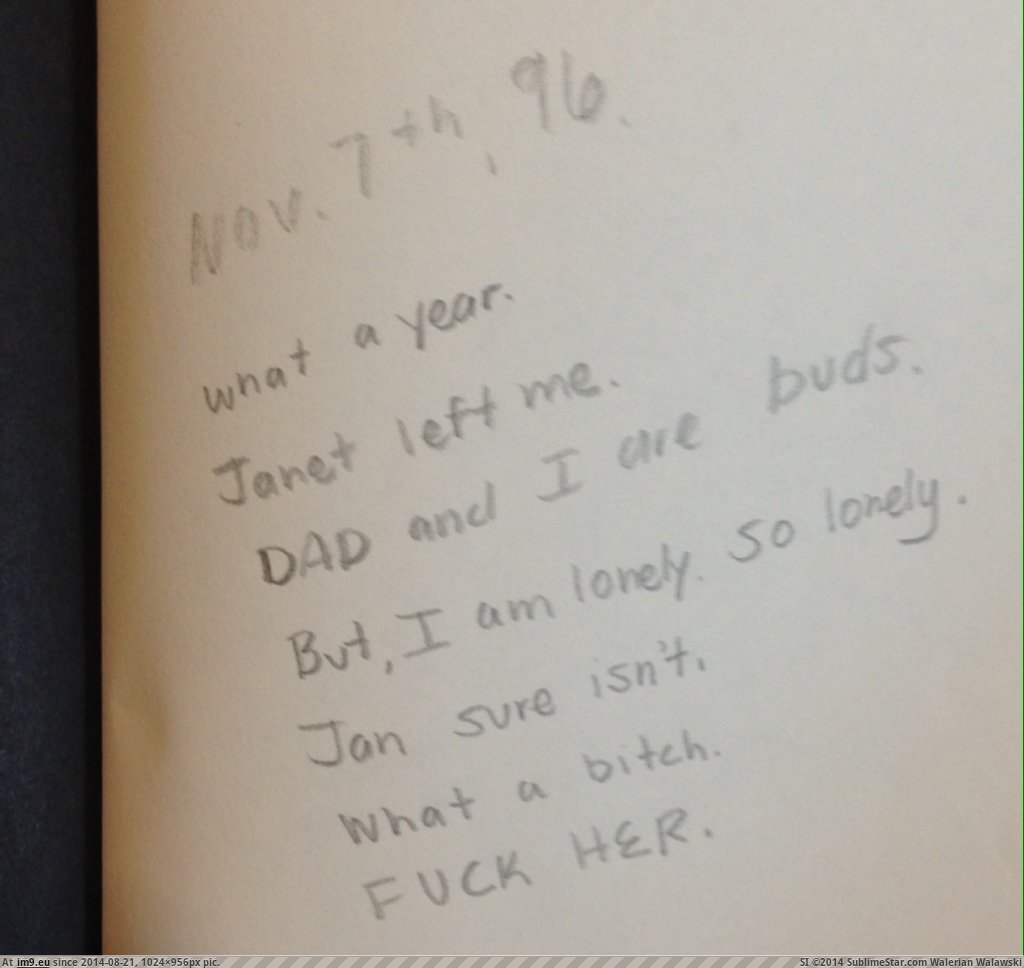 Nov. 7th, 96.
what a year.
Janet left me.
DAD and I are buds.
But, I am lonely. So lonely.
Jan sure isn't.
What a bitch.
FUCK HER.
At im9.eu since 2014-08-21, 1024×956px pic.
SI ©2014 SublimeStar.com Walerian Walawski